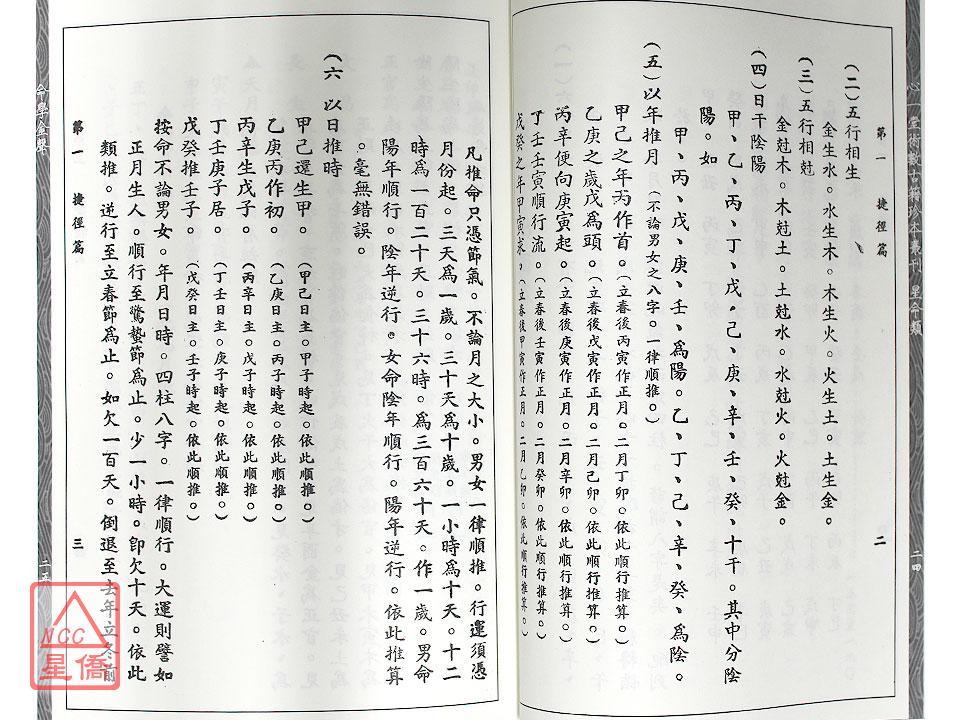 心一堂術數古籍珍本叢刊 星命類
二四
第一 捷徑篇
二
(二)五行相生
金生水。水生木。木生火。火生土。土生金。
(三)五行相尅
金尅木。木尅土。土尅水。水尅火。火尅金。
(四)日干陰陽
甲、乙、丙、丁、戊、己、庚、辛、壬、癸、十干。其中分陰
陽。如
甲、丙、戊、庚、壬、爲陽。乙、丁、己、辛、癸、爲陰。
(五)以年推月(不論男女之八字。一律順推。)
甲己之年丙作首。(立春後丙寅作正月。二月丁卯。依此順行推算。)
乙庚之歲戊爲頭。(立春後戊寅作正月。二月己卯。依此順行推算。)
丙辛便向庚寅起。(立春後庚寅作正月。二月辛卯。依此順行推算。)
丁壬壬寅順行流。(立春後壬寅作正月。二月癸卯。依此順行推算。)
戊癸之年甲寅求。(立春後甲寅作正月。二月乙卯。依此順行推算。)
凡推命只憑節氣。不論月之大小。男女一律順推。行運須憑
月份起。三天爲一歲。三十天爲十歲。一小時爲十天。十二
時爲一百二十天。三十六時。爲三百六十天。作一歲。男命
陽年順行。陰年逆行。女命陰年順行。陽年逆行。依此推算
。毫無錯誤。
(六 以日推時
甲己還生甲。(甲己日主。甲子時起。依此順推。)
乙庚丙作初。(乙庚日主。丙子時起。依此順推。)
丙辛生戊子。(丙辛日主。戊子時起。依此順推。)
丁壬庚子居。(丁壬日主。庚子時起。依此順推。)
戊癸推壬子。(戊癸日主。壬子時起。依此順推。)
按命不論男女。年月日時。四柱八字。一律順行。大運則譬如
正月生人。順行至驚蟄節爲止。少一小時。卽欠十天。依此
類推。逆行至立春節爲止。如欠一百天。倒退至去年立冬前
第一 捷徑篇
三
命學金聲
NCC
星僑